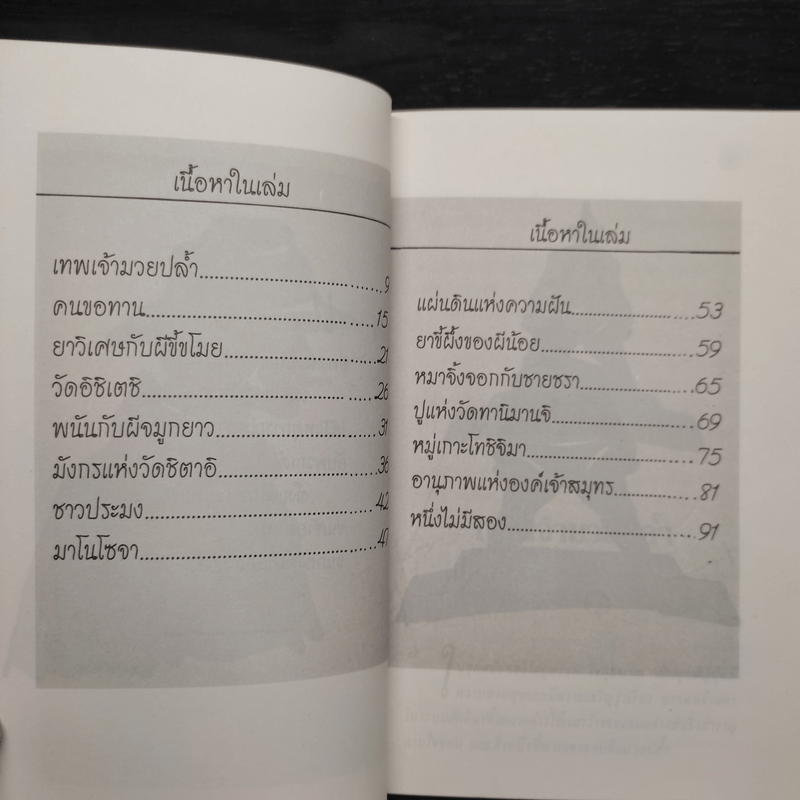 เนื้อหาในเล่ม
เทพเจ้ามวยปล้ำ........................9
คนขอทาน........................15
ยาวิเศษกับผีขี้ขโมย........................21
วัดอิชิเตชิ........................26
พนันกับผีจมูกยาว........................31
มังกรแห่งวัดชิตาอิ........................36
ชาวประมง........................42
มาโนโซจา........................47
เนื้อหาในเล่ม
แผ่นดินแห่งความฝัน........................53
ยาขี้ผึ้งของผีน้อย........................59
หมาจิ้งจอกกับชายชรา........................65
ปูแห่งวัดทานิมานจิ........................69
หมู่เกาะโทชิจิมา........................75
อานุภาพแห่งองค์เจ้าสมุทร........................81
หนึ่งไม่มีสอง........................91